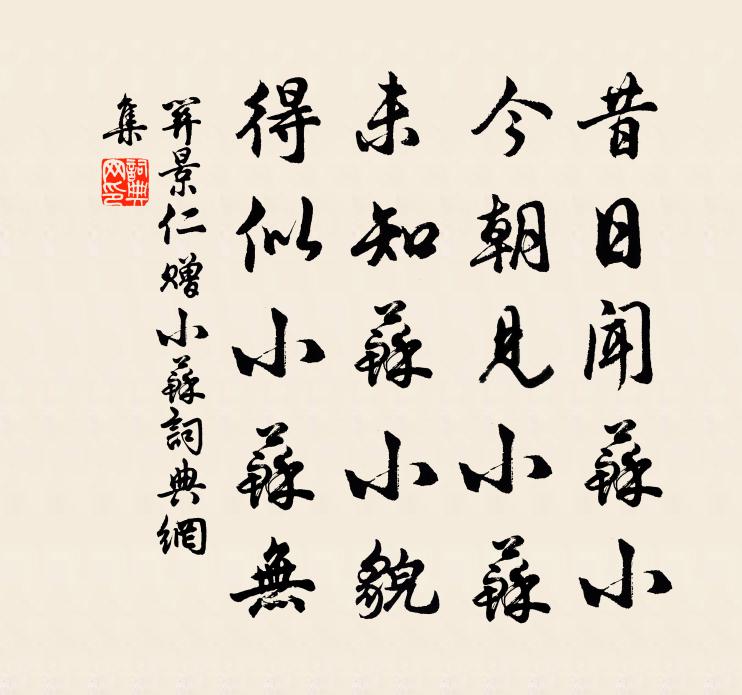 昔日聞蘇小
今朝見小蘇
未知蘇小貌
得似小蘇無
羿景仁贈小蘇詞典網
集
詞典
网印